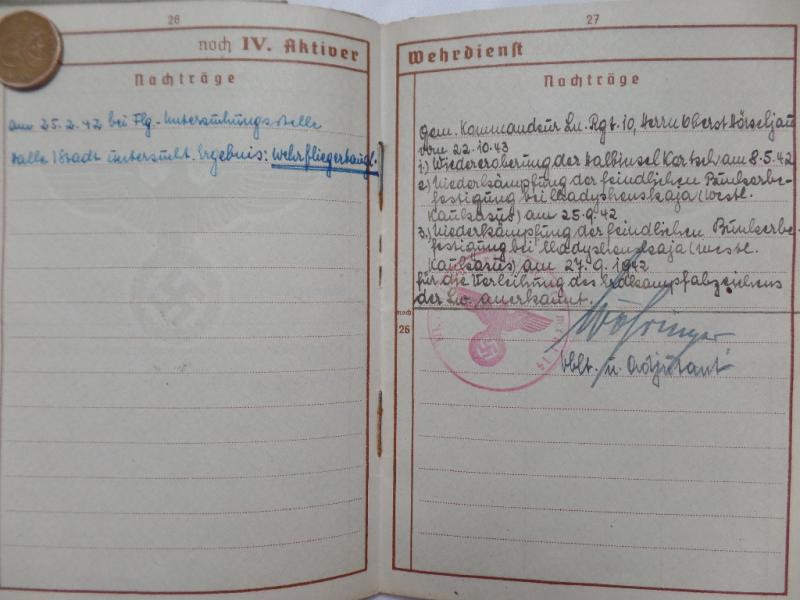 26
noch IV. Aktiver
Nachträge
am 25.2.42 bei Flg.-Untersuchungsstelle
Halle/Stadt untersucht. Ergebnis: Wehrfliegertaugl.
27
Wehrdienst
Nachträge
Gem. Kommandeur Ln. Rgt. 10, Herrn Oberst
vom 22.10.43
1.) Wiedereroberung der Halbinsel Kertsch am 8.5.42
2.) Niederkämpfung der feindlichen Bunkerbe-
festigung bei (westl.
Kaukasus) am 25.9.42
3.) Niederkämpfung der feindlichen Bunkerbe-
festigung bei (westl.
Kaukasus) am 27.9.1942
für die Verleihung des Erdkampfabzeichens
der Lw. anerkannt.
noch
26
Oblt. u. Adjutant